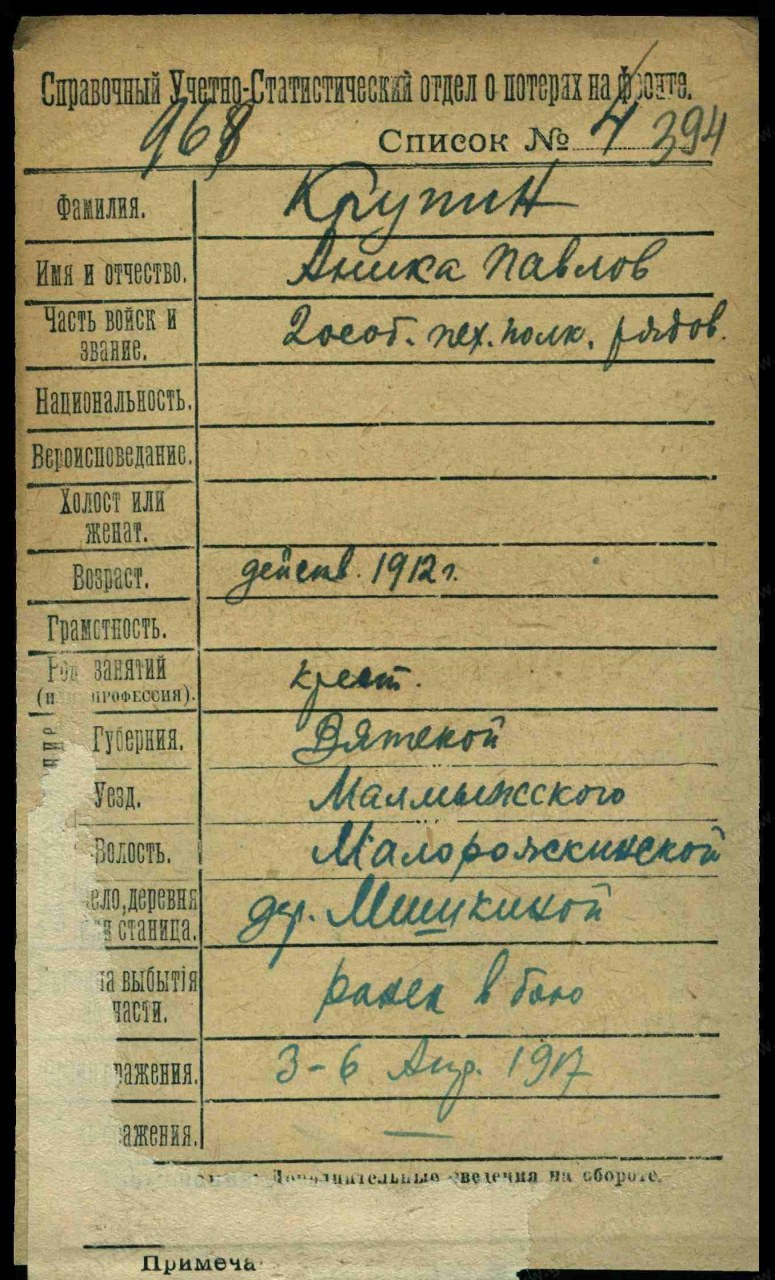 Справочный Учетно-Статистический отдел о потерях на фронте.
968 Список № 4 394
Фамилия. Крупин
Имя и отчество. Аника Павлов
Часть войск и звание. 2 особ. пех. полк. рядов.
Национальность.
Вероисповедание.
Холост или женат.
Возраст. действ. 1912 г.
Грамотность.
Род занятий (или профессия). крест.
Губерния. Вятской
Уезд. Малмыжского
Волость. Малорожкинской
село, деревня или станица. дер. Мишкиной
на выбытія части. ранен в бою
ражения. 3-6 Апр. 1917
ажения. —
Дополнительные сведения на обороте.
Примеча